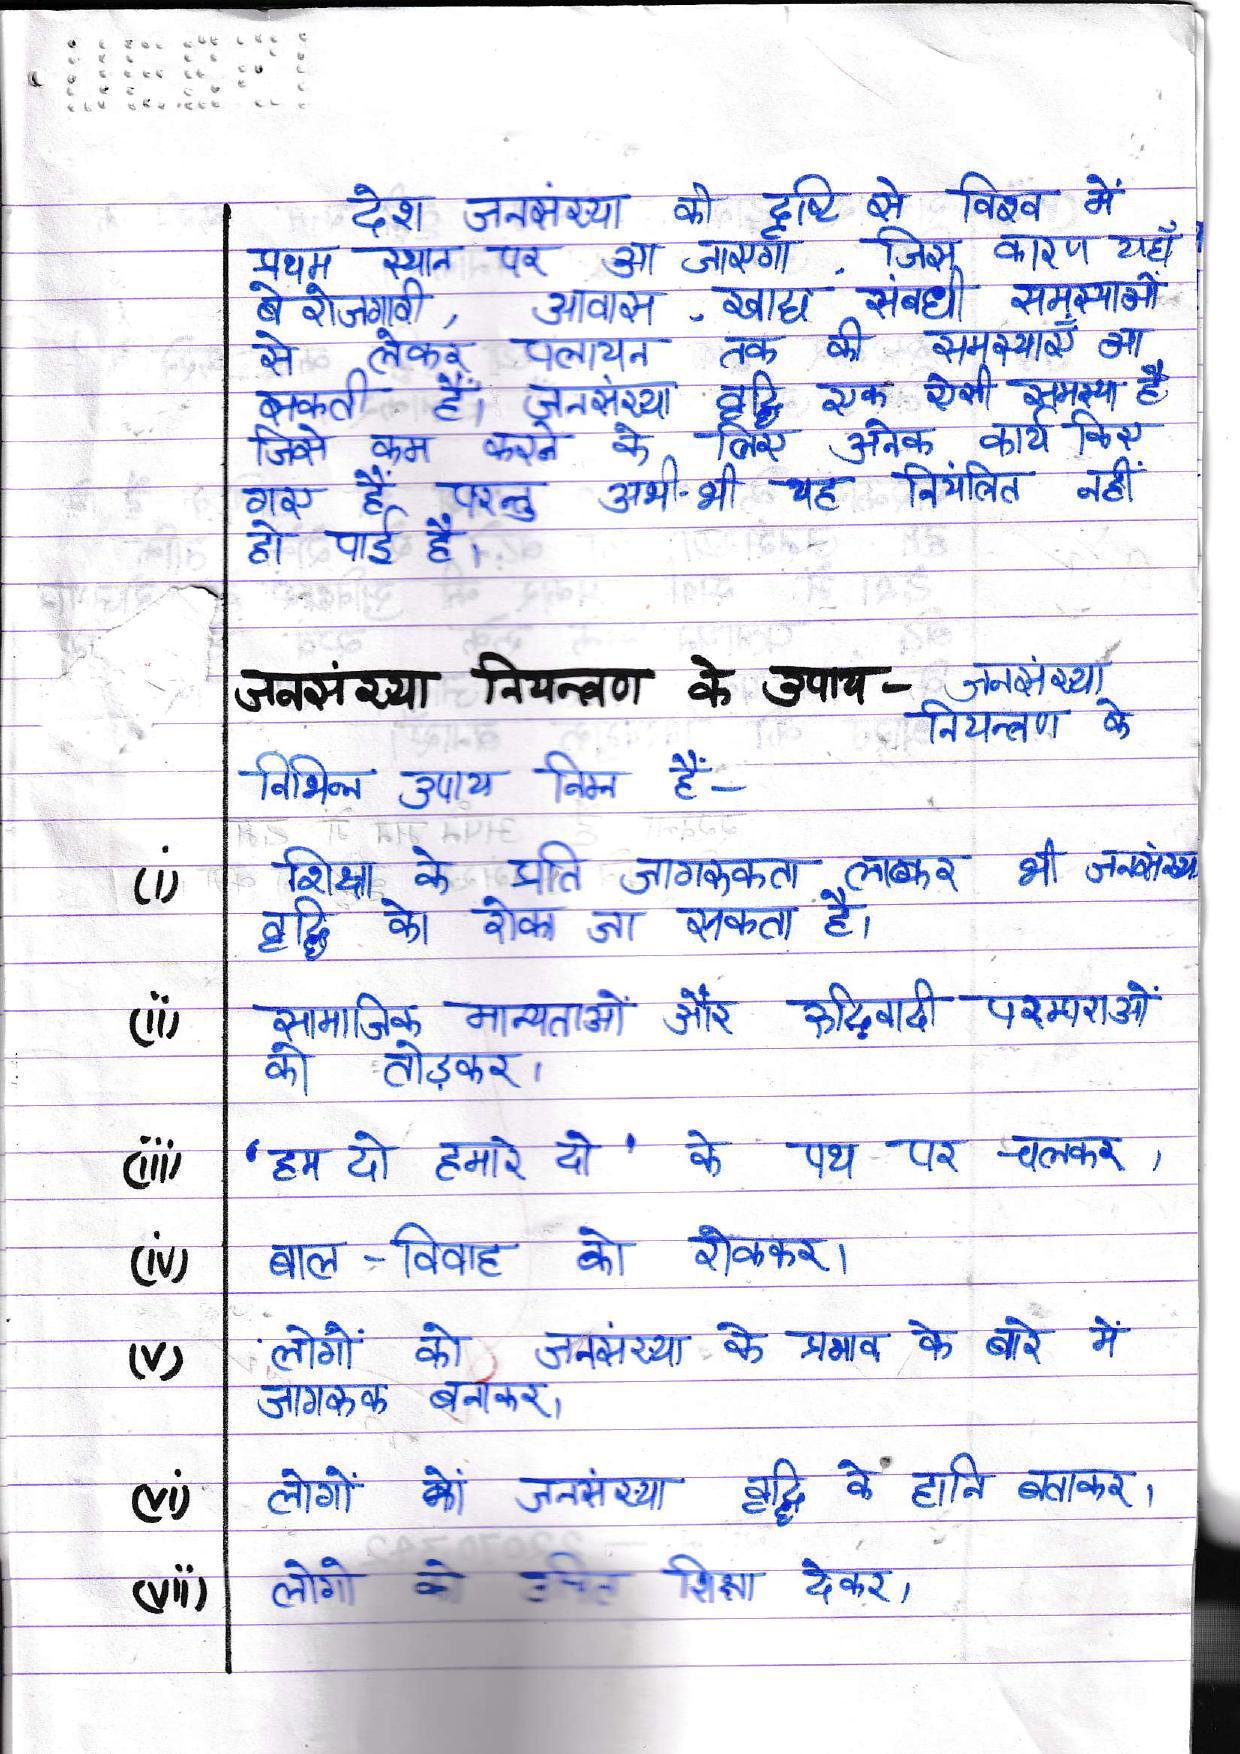 देश जनसंख्या की दृष्टि से विश्व में
प्रथम स्थान पर आ जाएगा, जिस कारण यहाँ
बेरोजगारी, आवास, खाद्य संबधी समस्याओं
से लेकर पलायन तक की समस्याएँ आ
सकती हैं। जनसंख्या वृद्धि एक ऐसी समस्या है
जिसे कम करने के लिए अनेक कार्य किए
गए हैं परन्तु अभी-भी यह नियंत्रित नहीं
हो पाई है।
जनसंख्या नियन्त्रण के उपाय - जनसंख्या
नियन्त्रण के
विभिन्न उपाय निम्न हैं-
(i) शिक्षा के प्रति जागरूकता लाकर भी जनसंख्या
वृद्धि को रोका जा सकता है।
(ii) सामाजिक मान्यताओं और रूढ़िवादी परम्पराओं
को तोड़कर।
(iii) 'हम दो हमारे दो' के पथ पर चलकर।
(iv) बाल-विवाह को रोककर।
(v) लोगों को जनसंख्या के प्रभाव के बारे में
जागरूक बनाकर।
(vi) लोगों को जनसंख्या वृद्धि के हानि बताकर।
(vii) लोगो को उचित शिक्षा देकर।